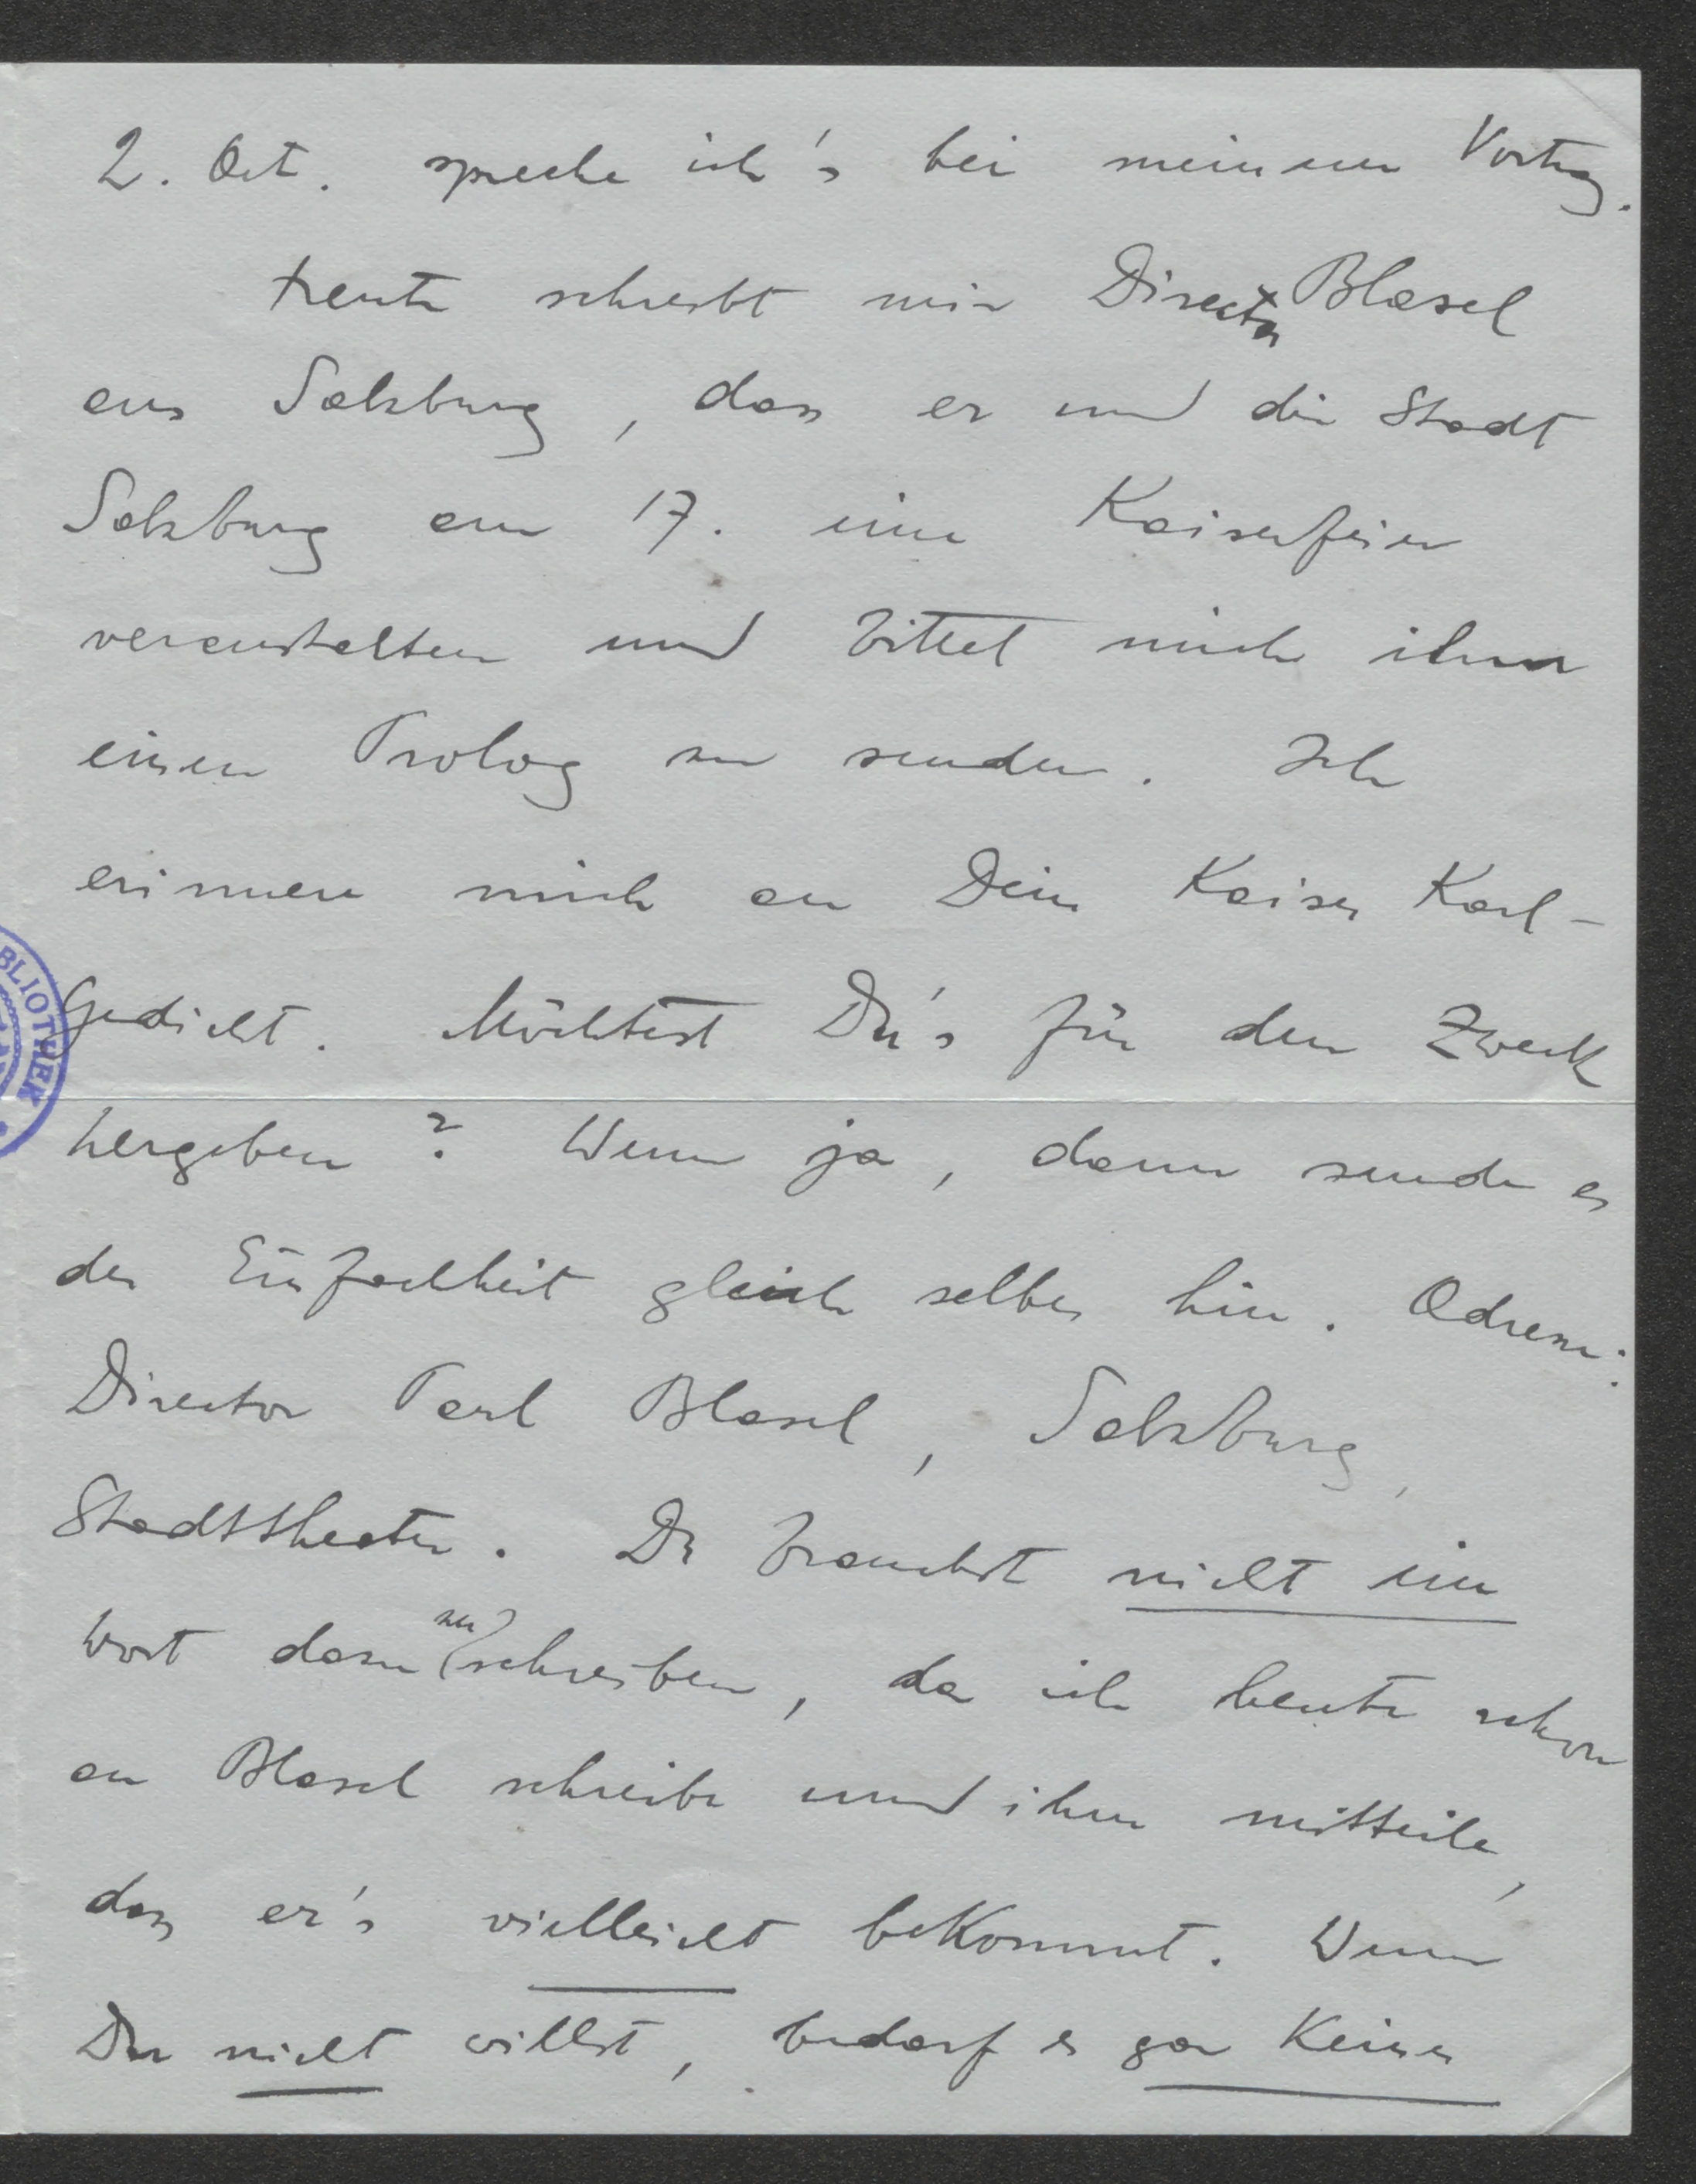 2. Oct. spreche ich's bei meinem Vortrag.
Heute schreibt mir Director Blasel
aus Salzburg, dass er und die Stadt
Salzburg am 17. eine Kaiserfeier
veranstalten und bittet mich ihm
einen Prolog zu senden. Ich
erinnere mich an Dein Kaiser Karl-
Gedicht. Möchtest Du's für den Zweck
BLIOTHEK
hergeben? Wenn ja, dann sende es
der Einfachheit gleich selber hin. Adresse:
Director Carl Blasel, Salzburg,
Stadttheater. Du brauchst nicht ein
Wort dazu zu schreiben, da ich heute schon
an Blasel schreibe und ihm mitteile,
dass er's vielleicht bekommt. Wenn
Du nicht willst, bedarf es gar keiner